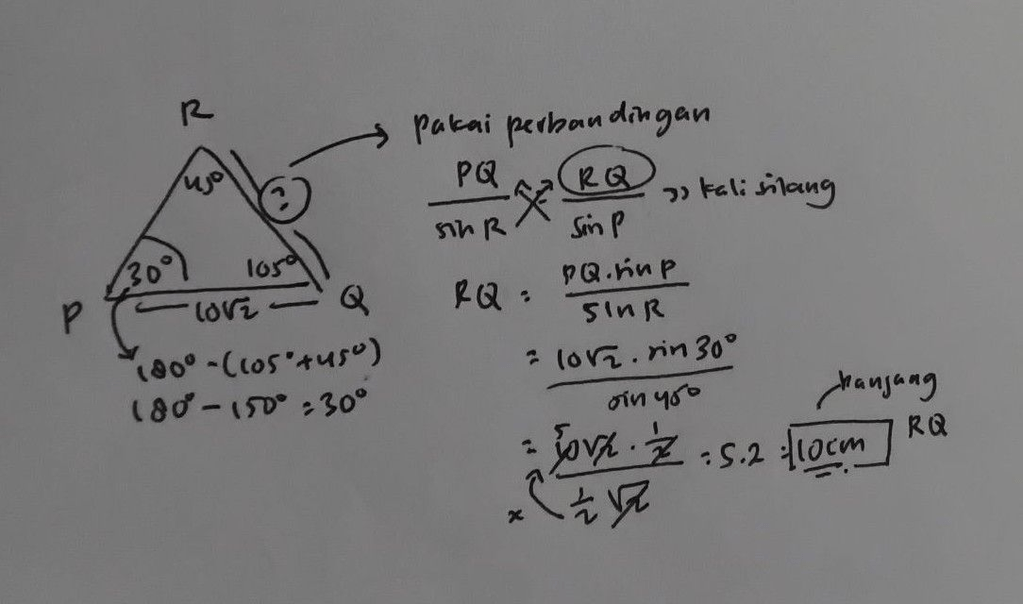 R
45°
?
30°
105°
P
10√2
Q
180° - (105° + 45°)
180° - 150° = 30°
pakai perbandingan
PQ/sin R = RQ/sin P >> kali silang
RQ = PQ . sin P / sin R
= 10√2 . sin 30° / sin 45°
= 10√2 . 1/2 / 1/2 √2 = 5.2 = 10cm
5
x
panjang
RQ